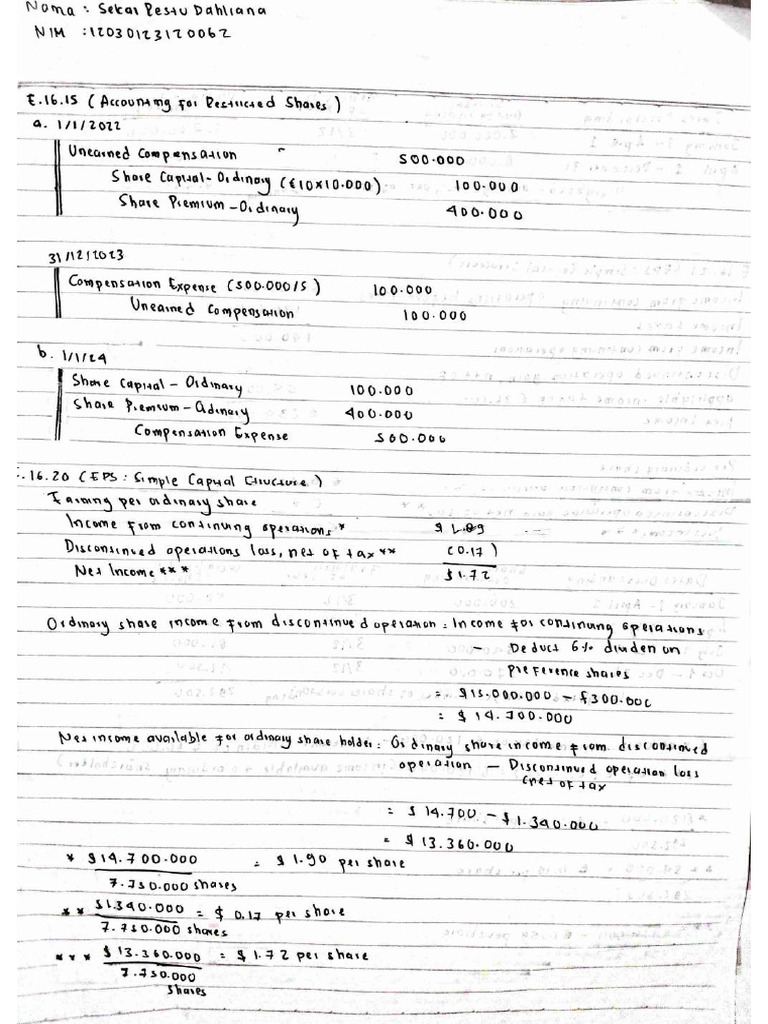 Nama : Sekar Restu Dahliana
NIM : 12030123120062
E.16.15 (Accounting for Restricted Shares)
a. 1/1/2022
Unearned Compensation 500.000
Share Capital-Ordinary (€10x10.000) 100.000
Share Premium-Ordinary 400.000
31/12/2023
Compensation Expense (500.000/5) 100.000
Unearned Compensation 100.000
b. 1/1/24
Share Capital - Ordinary 100.000
Share Premium-Ordinary 400.000
Compensation Expense 500.000
E.16.20 (EPS: Simple Capital Structure)
Earning per ordinary share
Income from continuing operations* $ 1.89
Discontinued operations loss, net of tax** (0.17)
Net Income*** $1.72
Ordinary share income from discontinued operation = Income for continuing operations
- Deduct 6% dividen on
preference shares
= $15.000.000 - £300.000
= $ 14.700.000
Net income available for ordinary share holder = Ordinary share income from discontinued
operation - Discontinued operation loss
(net of tax
= $ 14.700 - $1.340.000
= $ 13.360.000
* $ 14.700.000 = $ 1.90 per share
7.750.000 shares
** $1.340.000 = $ 0.17 per share
7.750.000 shares
*** $ 13.360.000 = $ 1.72 per share
7.750.000
shares